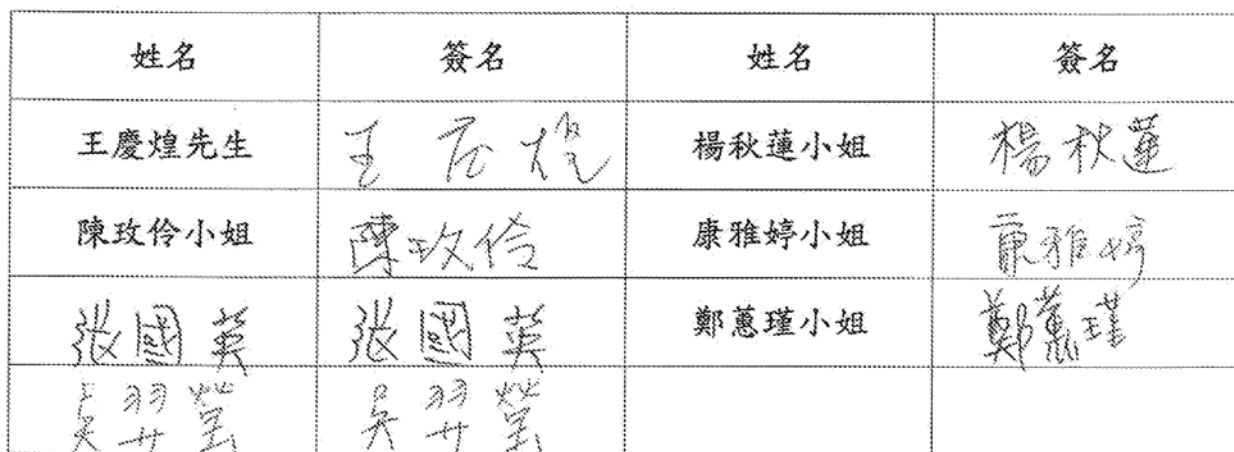 姓名 簽名 姓名 簽名
王慶煌先生 王慶煌 楊秋蓮小姐 楊秋蓮
陳玫伶小姐 陳玫伶 康雅婷小姐 康雅婷
張國英 張國英 鄭蕙瑾小姐 鄭蕙瑾
吳羿瑩 吳羿瑩